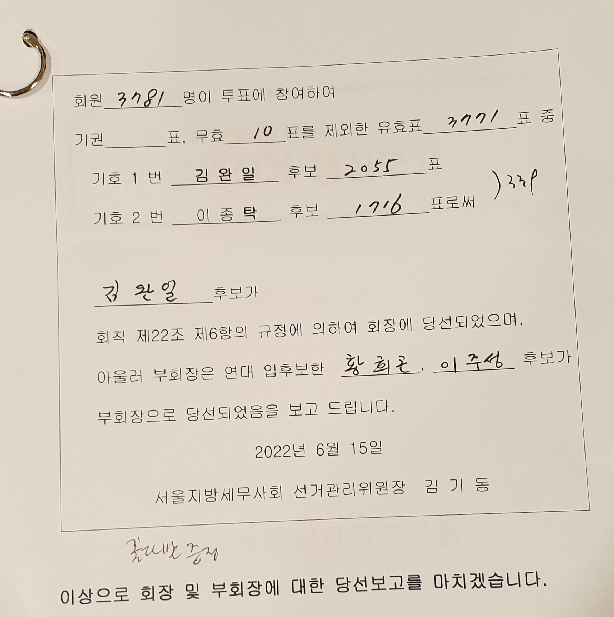 회원 3781 명이 투표에 참여하여
기권 표, 무효 10 표를 제외한 유효표 3771 표 중
기호 1 번 김 완 일 후보 2055 표
) 339
기호 2 번 이 종 탁 후보 1716 표로써
김 완 일 후보가
회칙 제22조 제6항의 규정에 의하여 회장에 당선되었으며,
아울러 부회장은 연대 입후보한 황희곤, 이주성 후보가
부회장으로 당선되었음을 보고 드립니다.
2022년 6월 15일
서울지방세무사회 선거관리위원장 김 기 동
꽃다발 증정
이상으로 회장 및 부회장에 대한 당선보고를 마치겠습니다.